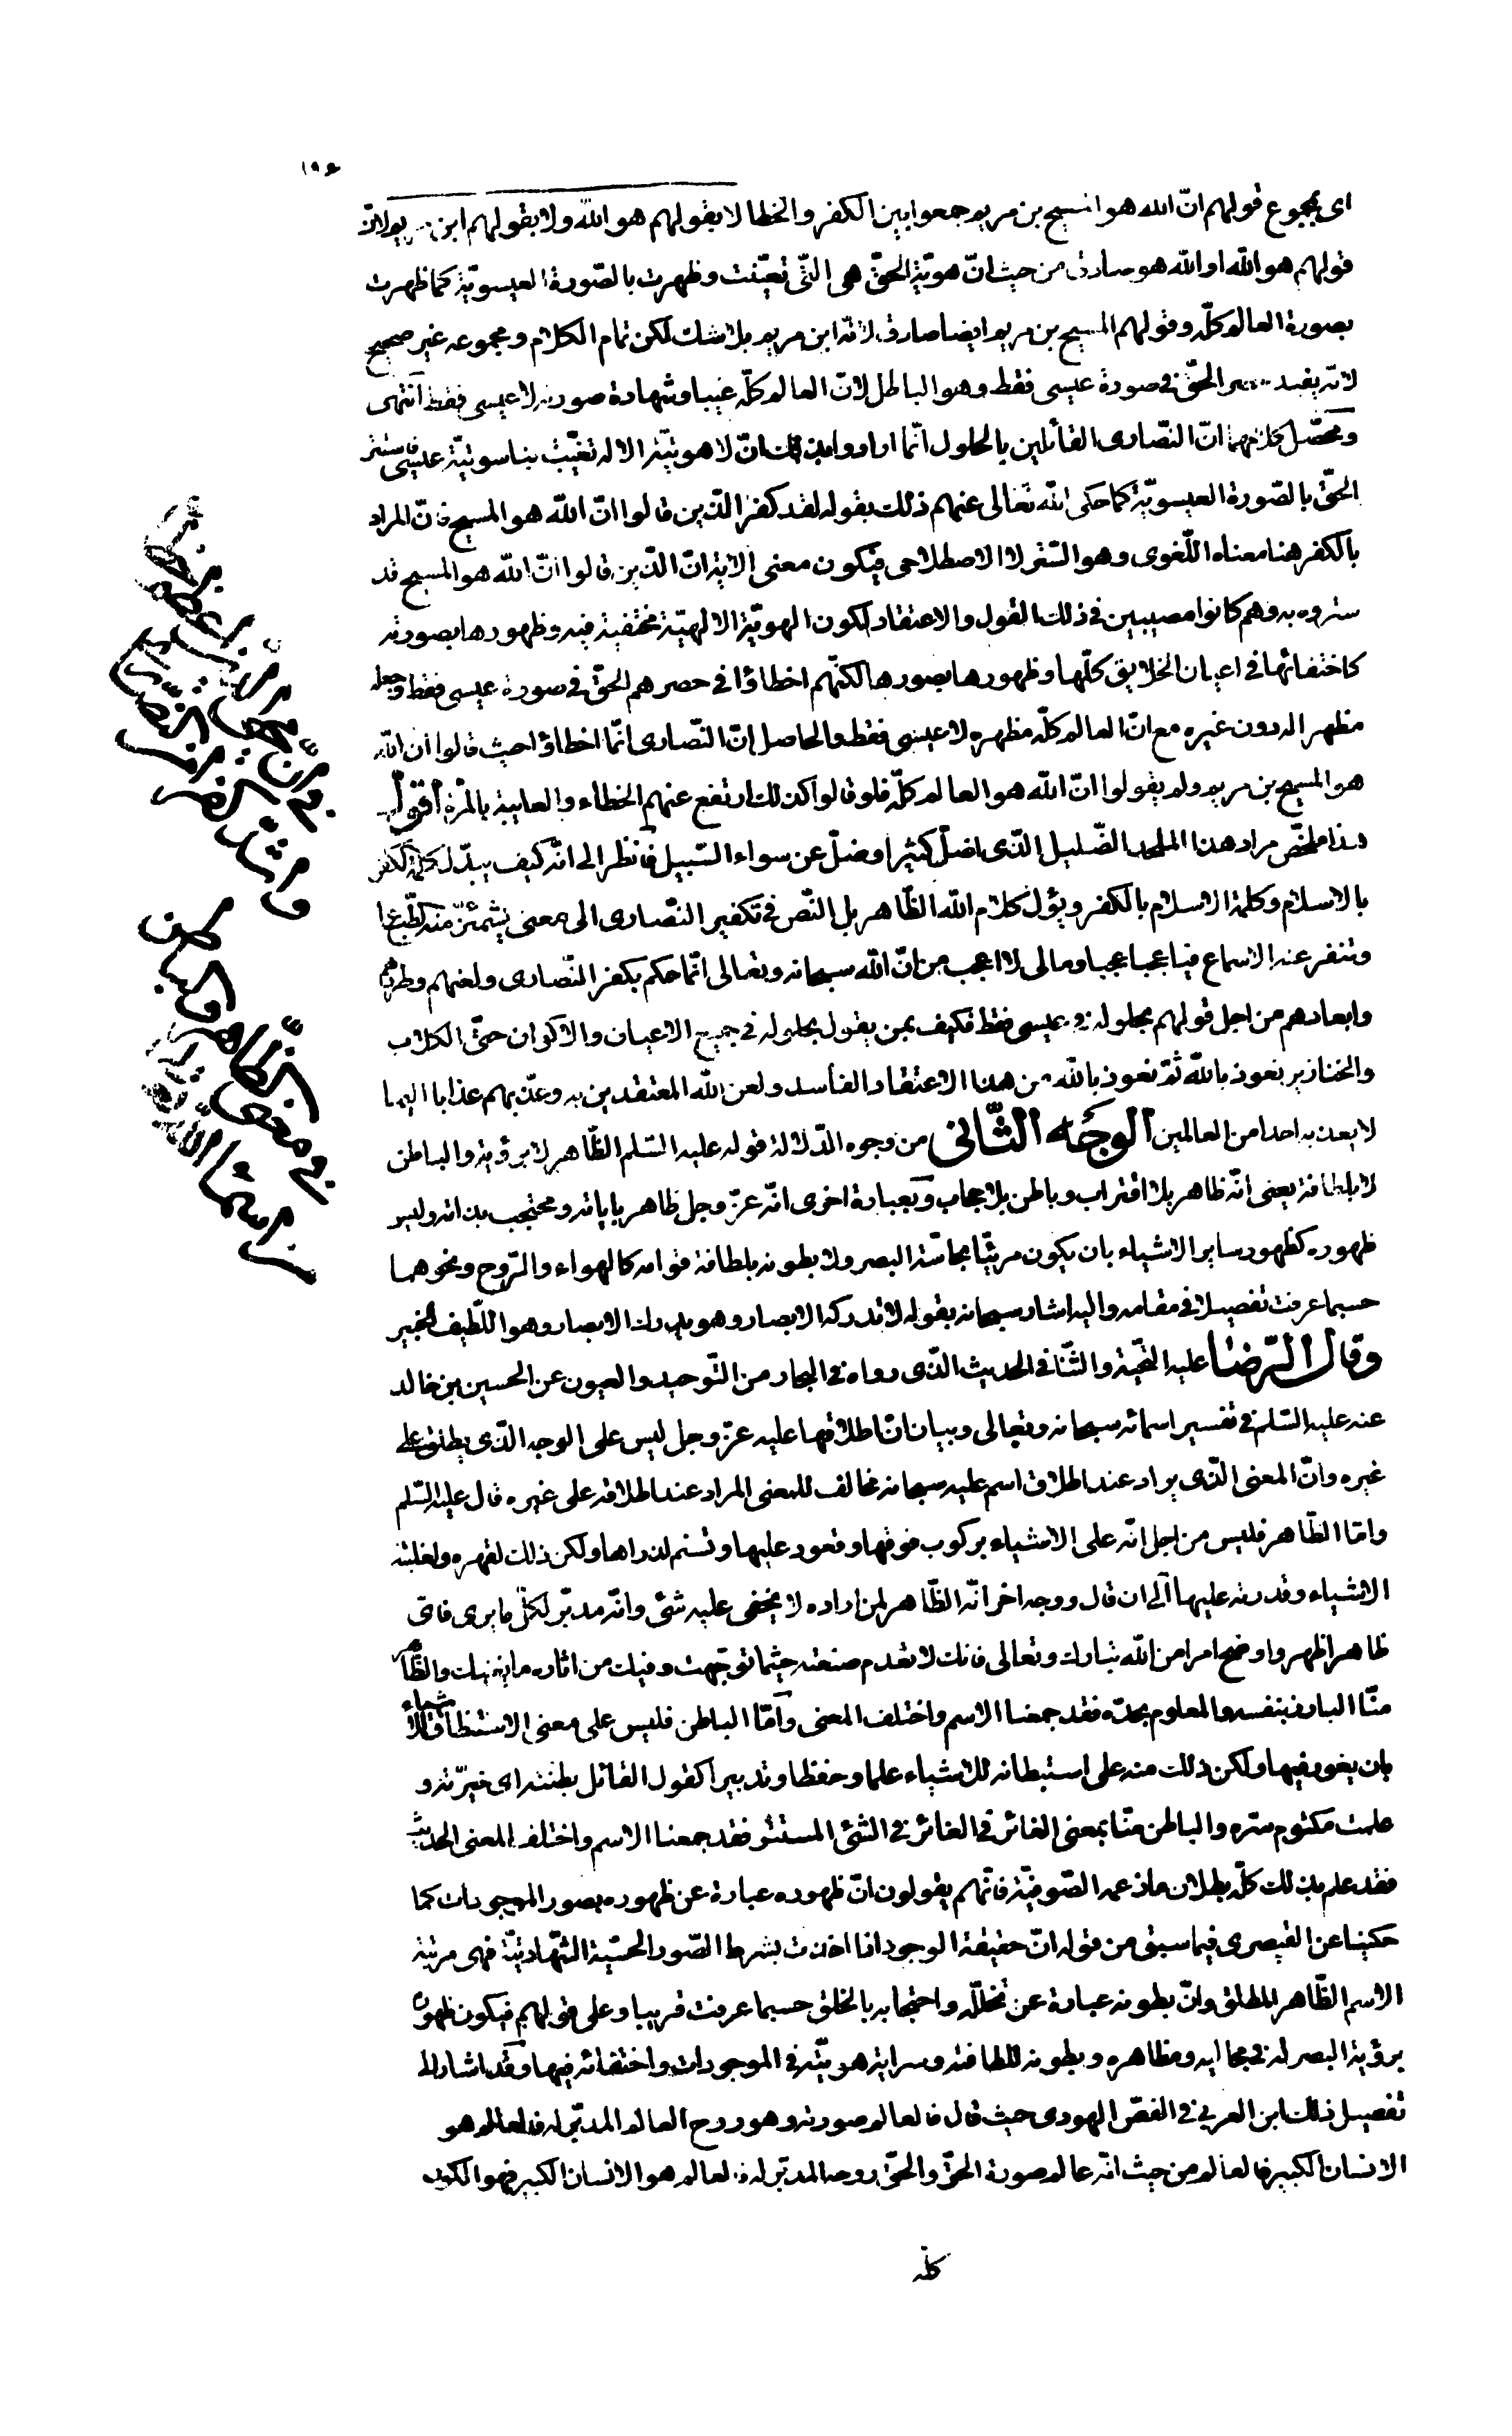 ١٩٤
اى بمجموع قولهم انّ الله هو المسيح بن مريم جمعوا بين الكفر والخطا لا بقولهم هو الله ولا بقولهم ابن مريم لانّ
قولهم هو الله او الله هو صادق من حيث انّ هويّة الحقّ هى الّتى تعيّنت وظهرت بالصّورة العيسويّة كما ظهرت
بصورة العالم كلّه وقولهم المسيح بن مريم ايضا صادق لانّه ابن مريم بلا شك لكن تمام الكلام ومجموعه غير صحيح
لانّه يفيد حصر الحقّ فى صورة عيسى فقط وهو الباطل لانّ العالم كلّه غيبا وشهادة صورته لا عيسى فقط انتهى
ومحصّل كلامهما انّ النّصارى القائلين بالحلول انّما ارادوا بذلك انّ لاهوتيّة الاله تغيّبت بناسوتيّة عيسى فاستتر
الحقّ بالصّورة العيسويّة كما حكى الله تعالى عنهم ذلك بقوله لقد كفر الّذين قالوا انّ الله هو المسيح فانّ المراد
بالكفر هنا معناه اللّغوى وهو السّتر لا الاصطلاحى فيكون معنى الاية انّ الّذين قالوا انّ الله هو المسيح قد
ستروه به وهم كانوا مصيبين فى ذلك القول والاعتقاد لكون الهويّة الالهيّة مختفية فيه وظهورها بصورته
كاختفائها فى اعيان الخلايق كلّها وظهورها بصورها لكنّهم اخطاؤا فى حصرهم الحقّ فى صورة عيسى فقط وجعله
مظهرا له دون غيره مع انّ العالم كلّه مظهره لا عيسى فقط والحاصل انّ النّصارى انّما اخطاؤا حيث قالوا ان الله
هو المسيح بن مريم ولم يقولوا انّ الله هو العالم كلّه فلو قالوا كذلك ارتفع عنهم الخطاء والعايبة بالمرّة اقول
هذا ملخّص مراد هذا الملحد الضّليل الّذى اضلّ كثيرا وضلّ عن سواء السّبيل فانظر الى انّه كيف يبدّل كلمة الكفر
بالاسلام وكلمة الاسلام بالكفر ويؤل كلام الله الظّاهر بل النّص فى تكفير النّصارى الى معنى يشمئزّ منه الطّباع
وتنفر عنه الاسماع فيا عجبا عجبا ومالى لا اعجب من انّ الله سبحانه وتعالى انّما حكم بكفر النّصارى ولعنهم وطردهم
وابعادهم من اجل قولهم بحلوله فى عيسى فقط فكيف بمن يقول بحلوله فى جميع الاعيان والاكوان حتّى الكلاب
والخنازير نعوذ بالله ثمّ نعوذ بالله من هذا الاعتقاد الفاسد ولعن الله المعتقدين به وعذّبهم عذابا اليما
لا يعذبه احدا من العالمين الوجه الثّانى من وجوه الدّلالة قوله عليه السّلم الظّاهر لا برؤية والباطن
لا بلطافة يعنى انّه ظاهر بلا اقتراب وباطن بلا حجاب وبعبارة اخرى انّه عزّ وجل ظاهر باياته ومحتجب بذاته وليس
ظهوره كظهور ساير الاشياء بان يكون مرئيّا بحاسّة البصر ولا بطونه بلطافة قوامه كالهواء والرّوح ونحوهما
حسبما عرفت تفصيلا فى مقامه واليه اشار سبحانه بقوله لا تدركه الابصار وهو يدرك الابصار وهو اللّطيف الخبير
وقال الرّضا عليه التّحيّة والثّنا فى الحديث الّذى رواه فى البحار من التّوحيد والعيون عن الحسين بن خالد
عنه عليه السّلم فى تفسير اسمائه سبحانه وتعالى وبيان انّ اطلاقها عليه عزّ وجل ليس على الوجه الّذى يطلق على
غيره وانّ المعنى الّذى يراد عند اطلاق اسم عليه سبحانه مخالف للمعنى المراد عند اطلاقه على غيره قال عليه السّلم
وامّا الظّاهر فليس من اجل انّه على الاشياء بركوب فوقها وقعود عليها وتسنم لذراها ولكن ذلك لقهره ولغلبته
الاشياء وقدرته عليها الى ان قال ووجه اخر انّه الظّاهر لمن اراده لا يخفى عليه شئ وانّه مدبّر لكلّ ما يرى فاى
ظاهر اظهر واوضح امرا من الله تبارك وتعالى فانك لا تعدم صنعته حيثما توجّهت وفيك من اثاره ما يغنيك والظّاهر
منّا البارز بنفسه والمعلوم بحدّه فقد جمعنا الاسم واختلف المعنى وامّا الباطن فليس على معنى الاستبطان للاشياء
بان يغور فيها ولكن ذلك منه على استبطانه للاشياء علما وحفظا وتدبيرا كقول القائل بطنته اى خبرته و
علمت مكتوم سرّه والباطن منّا بمعنى الغائر فى الغائر فى الشئ المستتر فقد جمعنا الاسم واختلف المعنى الحديث
فقد علم بذلك كلّه بطلان ما زعمه الصّوفيّة فانّهم يقولون انّ ظهوره عبارة عن ظهوره بصور الموجودات كما
حكينا عن القيصرى فيما سبق من قوله انّ حقيقة الوجود اذا اخذت بشرط الصّور الحسّية الشّهاديّة فهى مرتبة
الاسم الظّاهر المطلق وانّ بطونه عبارة عن تخلّله واحتجابه بالخلق حسبما عرفت قريبا وعلى قولهم فيكون ظهوره
برؤية البصر له فى مجاليه ومظاهره وبطونه للطافته وسراية هويّته فى الموجودات واختفائه فيها وقد اشار الى
تفصيل ذلك ابن العربى فى الفصّ الهودى حيث قال فالعالم صورته وهو روح العالم المدبّر له فالعالم هو
الانسان الكبير فالعالم من حيث انّه عالم صورة الحقّ والحقّ روحه المدبّر له فالعالم هو الانسان الكبير فهو الكون
كلّه